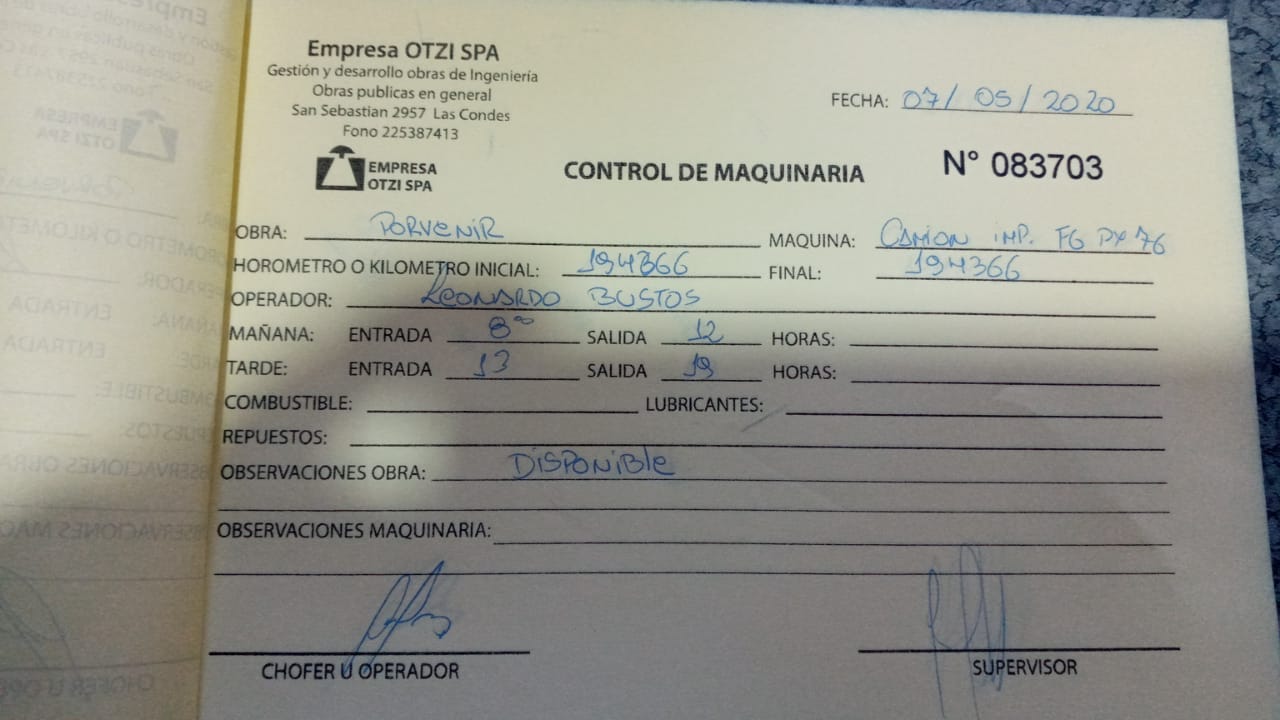 Empresa OTZI SPA
Gestión y desarrollo obras de Ingeniería
Obras publicas en general
San Sebastian 2957 Las Condes
Fono 225387413
EMPRESA
OTZI SPA
FECHA: 07/05/2020
CONTROL DE MAQUINARIA
N° 083703
OBRA: PORVENIR MAQUINA: CAMION IMP. FG PX 76
HOROMETRO O KILOMETRO INICIAL: 194366 FINAL: 194366
OPERADOR: LEONARDO BUSTOS
MAÑANA: ENTRADA 8°° SALIDA 12 HORAS:
TARDE: ENTRADA 13 SALIDA 19 HORAS:
COMBUSTIBLE: LUBRICANTES:
REPUESTOS:
OBSERVACIONES OBRA: DISPONIBLE
OBSERVACIONES MAQUINARIA:
CHOFER U OPERADOR SUPERVISOR